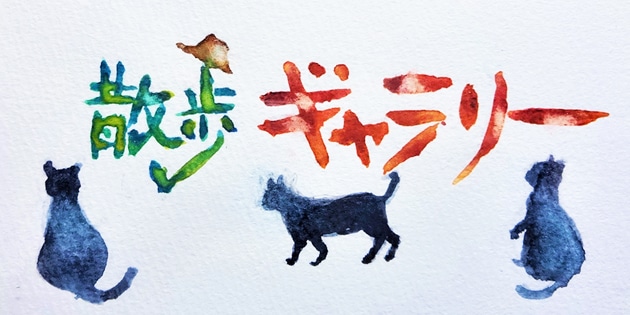 散歩ギャラリー